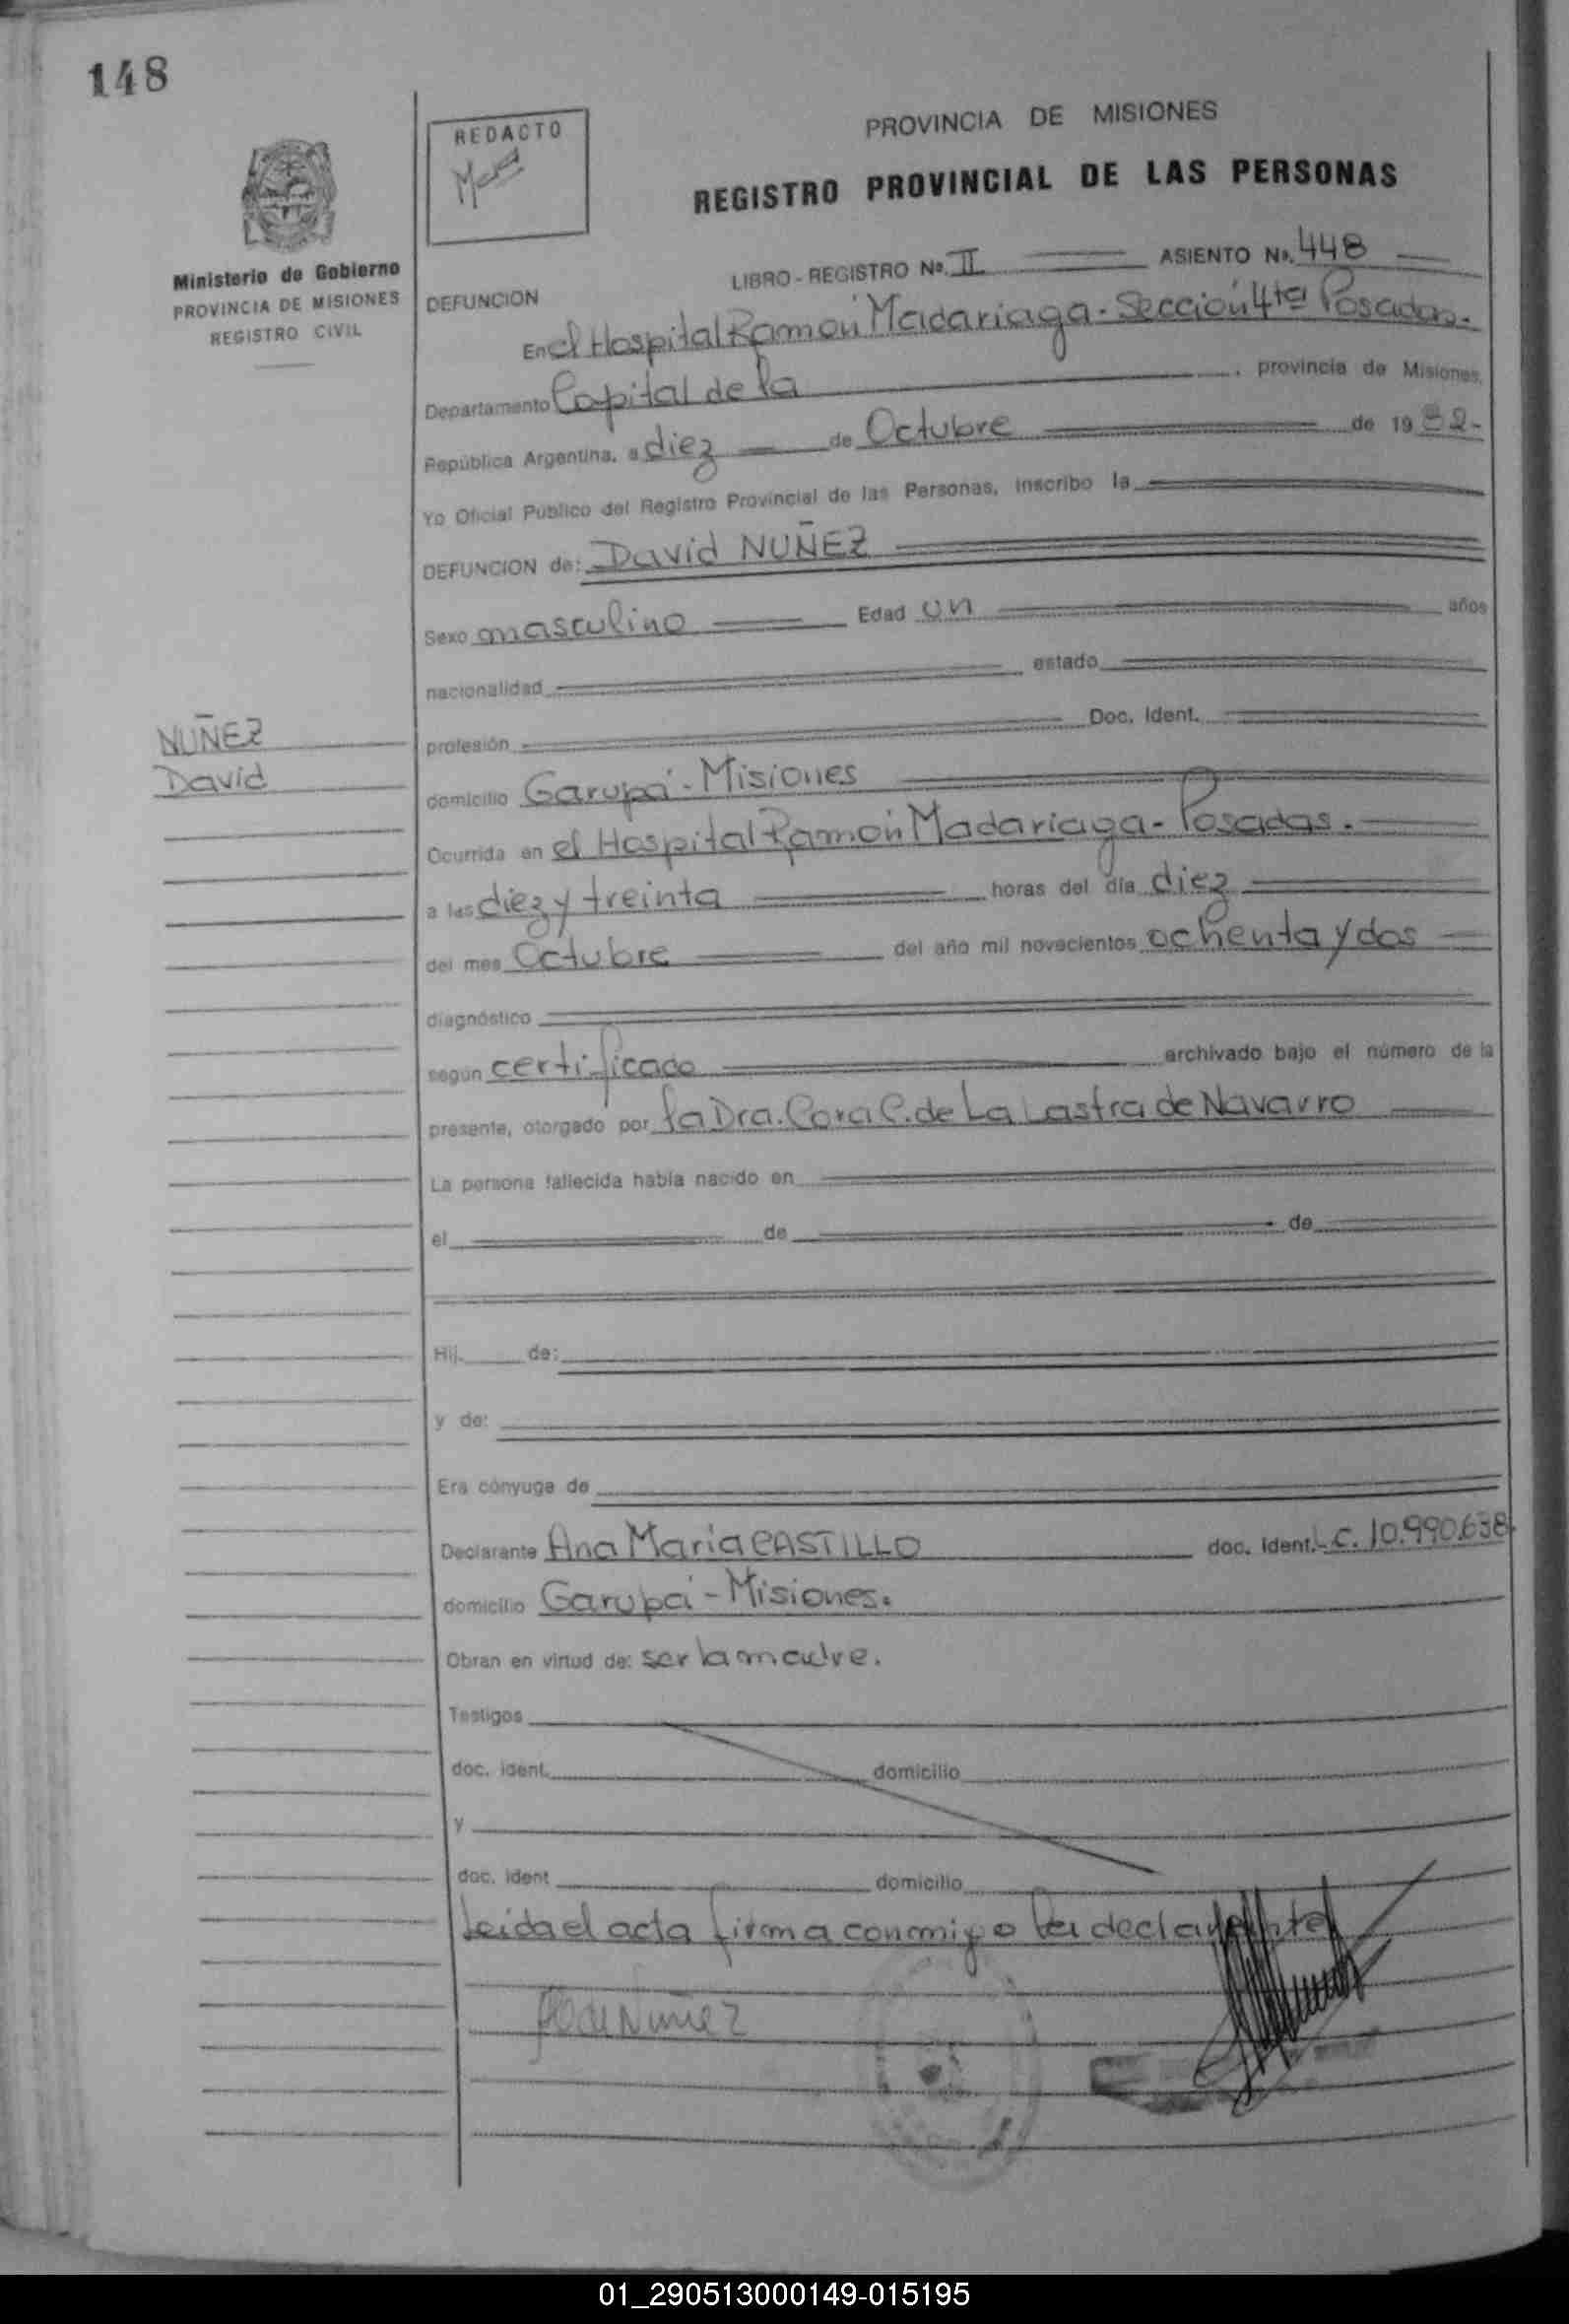 148
REDACTO
PROVINCIA DE MISIONES
REGISTRO PROVINCIAL DE LAS PERSONAS
Ministerio de Gobierno
PROVINCIA DE MISIONES
REGISTRO CIVIL
LIBRO - REGISTRO No. II ASIENTO No. 448
DEFUNCION
En el Hospital Ramón Madariaga - Sección 4ta Posadas.
Departamento Capital de la , provincia de Misiones,
República Argentina, a diez de Octubre de 1982-
Yo Oficial Público del Registro Provincial de las Personas, inscribo la
DEFUNCION de: David NUÑEZ
Sexo masculino Edad un años
nacionalidad estado
NUÑEZ
David
profesión Doc. Ident.
domicilio Garupá - Misiones
Ocurrida en el Hospital Ramón Madariaga - Posadas.
a las diez y treinta horas del día diez
del mes Octubre del año mil novecientos ochenta y dos
diagnóstico
según certificado archivado bajo el número de la
presente, otorgado por la Dra. Cora C. de La Lastra de Navarro
La persona fallecida había nacido en
el de de
Hij. de:
y de:
Era cónyuge de
Declarante Ana María CASTILLO doc. ident. L.C. 10.990.638
domicilio Garupá - Misiones.
Obran en virtud de: ser la madre.
Testigos
doc. ident. domicilio
y
doc. ident domicilio
Leida el acta firma conmigo la declarante
de Nuñez
01_290513000149-015195